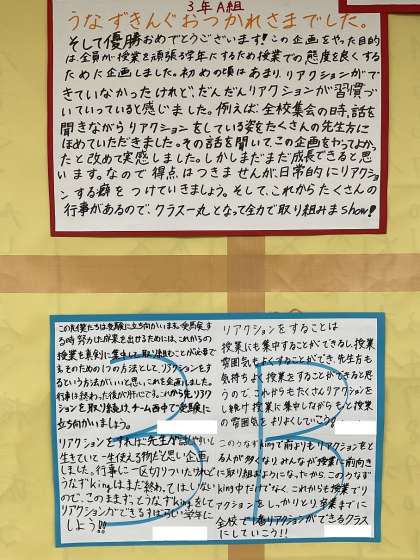 3年A組
うなずきんぐおつかれさまでした。
そして優勝おめでとうございます!この企画をやった目的
は、全員が授業を頑張る学年にするため授業での態度を良くする
ために企画しました。初めの頃はあまり、リアクションができ
ていなかったけれど、だんだんリアクションが習慣づ
いていっていると感じました。例えば、全校集会の時、話を
聞きながらリアクションをしている姿をたくさんの先生方に
ほめていただきました。その話を聞いて、この企画をやってよかっ
たと改めて実感しました。しかしまだまだ成長できると思
います。なので得点はつきませんが、日常的にリアクショ
ンする癖をつけていきましょう。そして、これからたくさんの
行事があるので、クラス一丸となって全力で取り組みまshow!
3B
この先僕たちは受験に立ち向かいます。受験突破する
時努力した成果を出せるためには、これからの
授業も真剣に集中して取り組むことが必要で
す。そのための1つの方法として、リアクションをす
るという方法がいいと思い、これを企画しました。
行事は終わった後が肝じです。これから先リアク
ションを取り続け、チーム西中で受験に
立ち向かいましょう。
リアクションをすれば先生が話しやすいし
生きていて一生使える物だと思い企画
しました。行事に一区切りついたけれど
うなずkingはまだ終わってはしない
ので、このまま、うなずkingをして
リアクションができるすばらしい学年に
しよう!!
リアクションをすることは
授業にも集中することができるし、授業
雰囲気もよくすることができ、先生方も
気持ちよく授業をすることができると思
うので、これからもたくさんリアクションを
し続け授業に集中しながらもっと授業
の雰囲気をよりよくしていこう!
このうなずkingで前よりもリアクションをとる
人が多くなり、みんなが授業に前向き
に取り組むようになったから、このうなず
king中だけでなく、これからも授業でリ
アクションをしっかりとり、卒業までに
全校で1番リアクションができるクラス
にしていこう!!